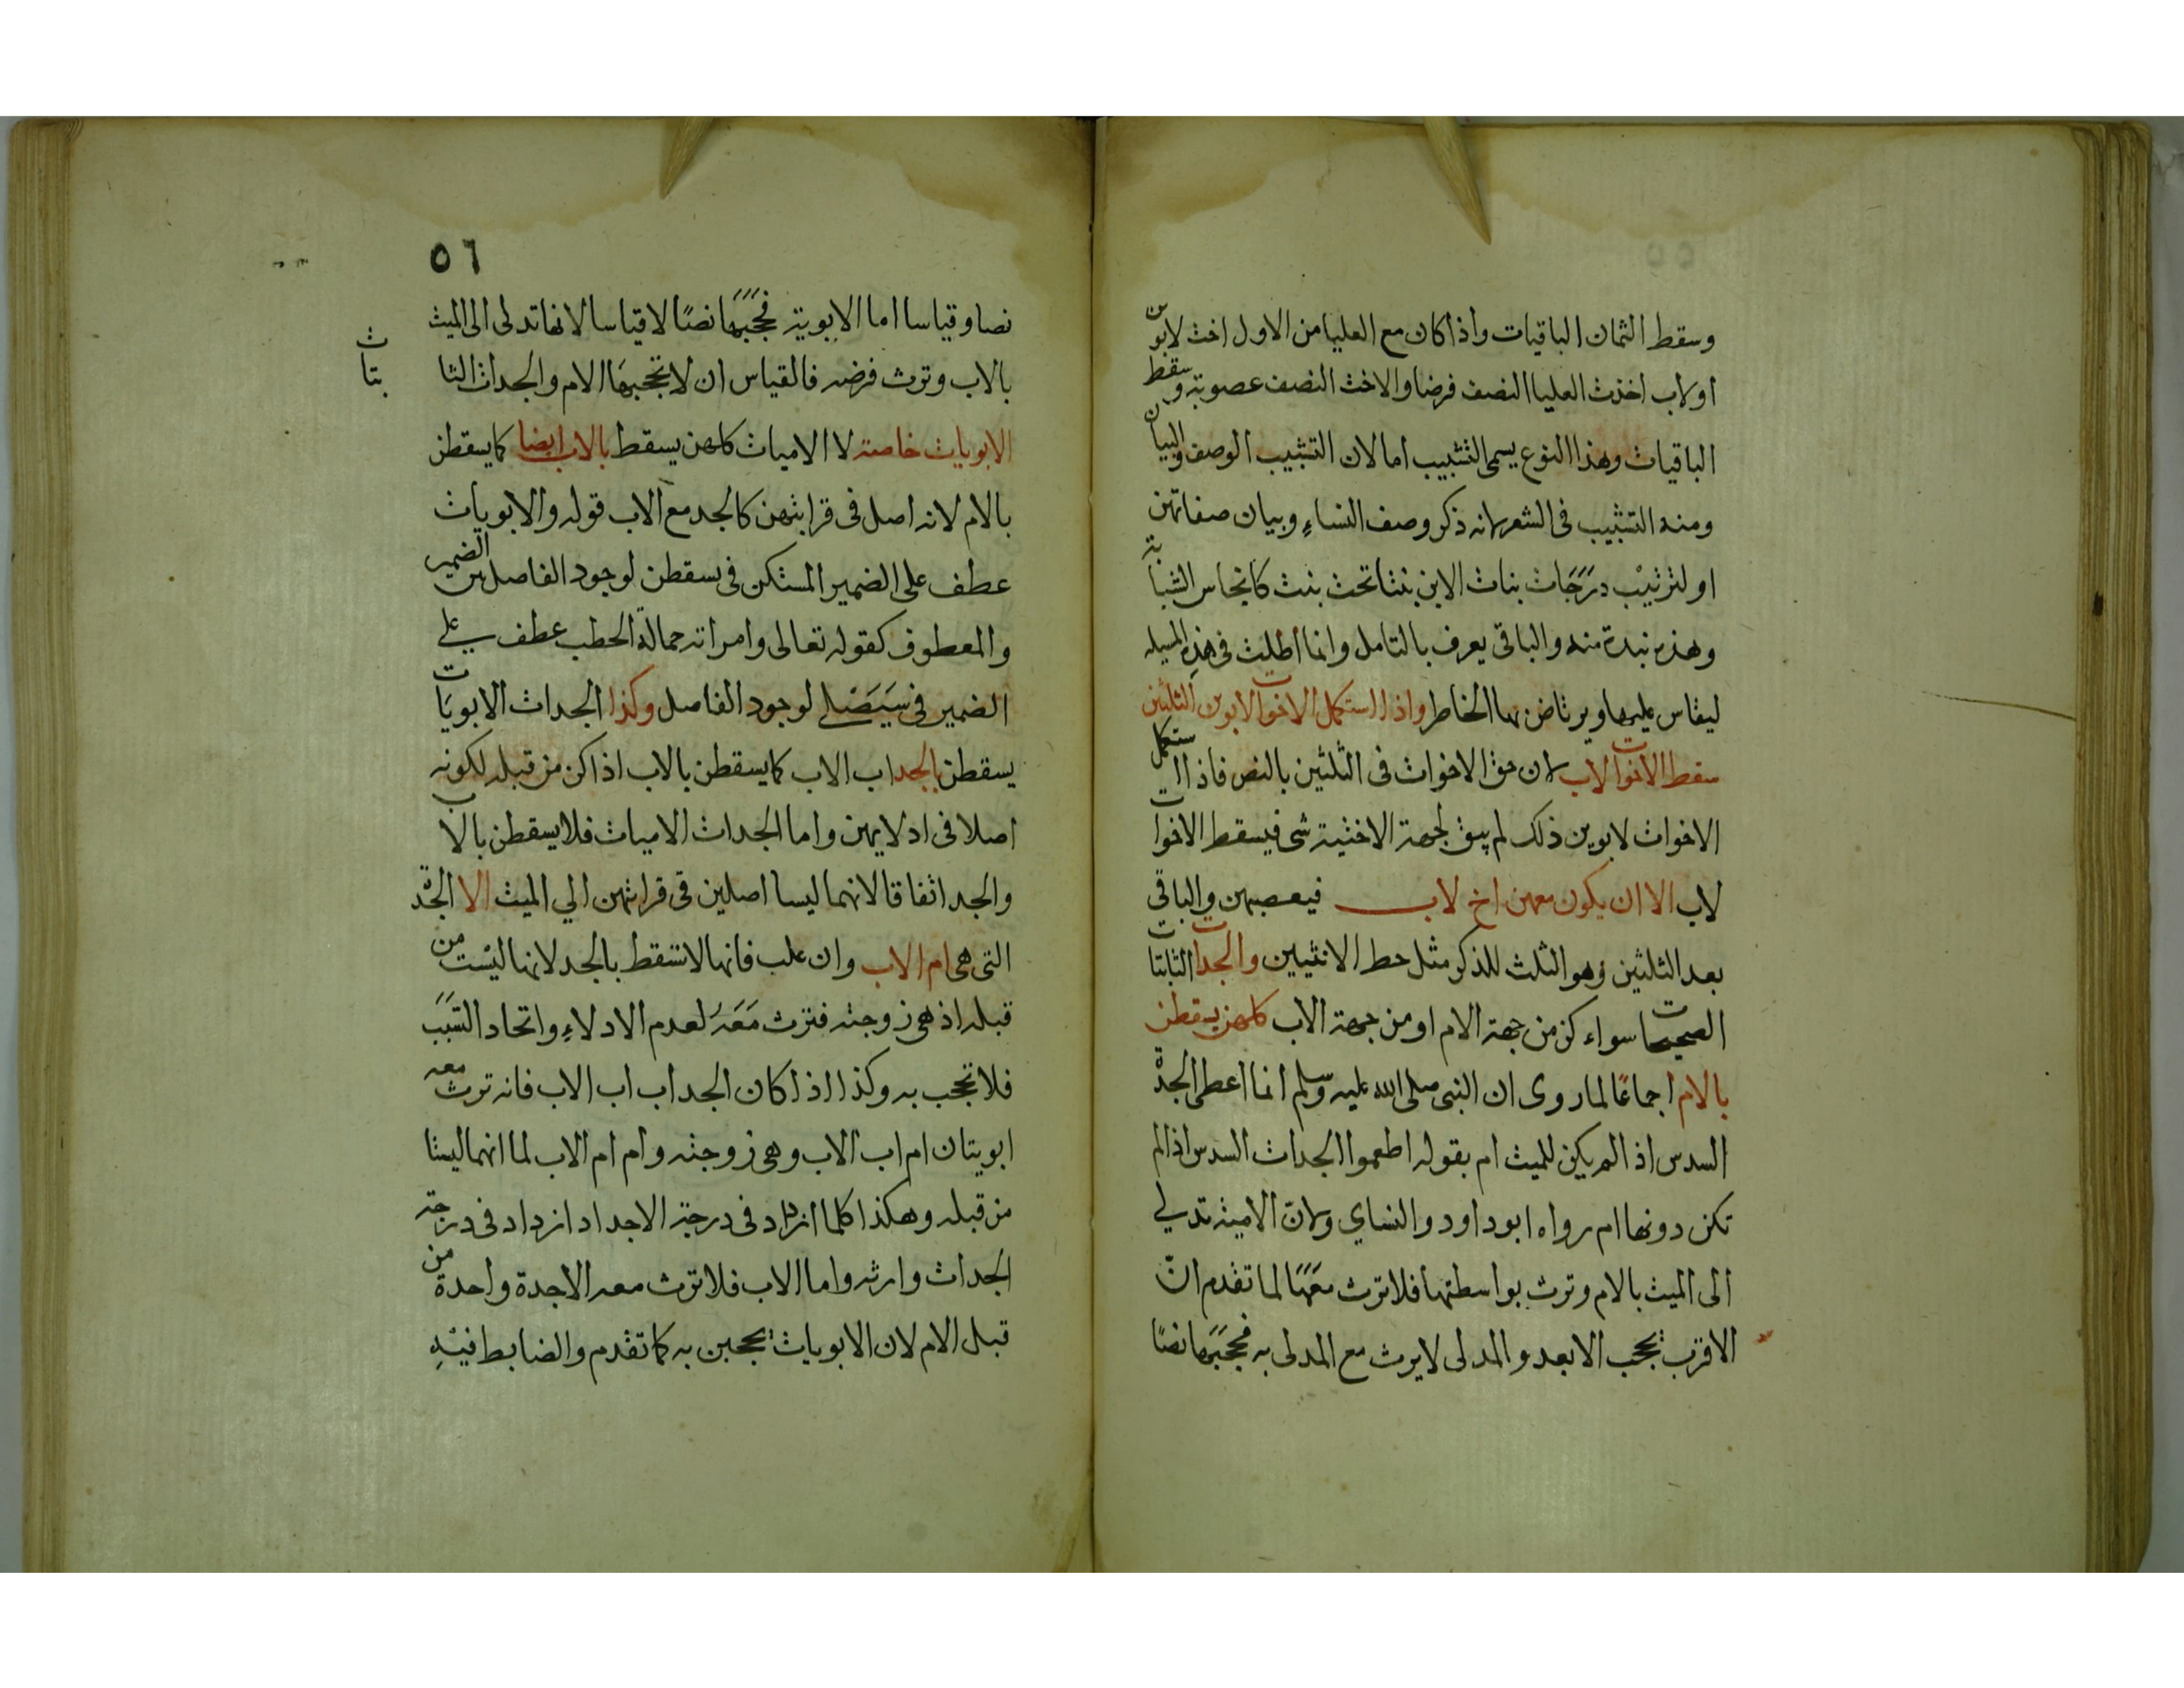 وسقط الثمان الباقيات واذا كان مع العليا من الاول اخت لابوين
او لاب اخذت العليا النصف فرضا والاخت النصف عصوبة وسقط
الباقيات وهذا النوع يسمى التشبيب اما لان التشبيب الوصف والبيان
ومنه التشبيب فى الشعر لانه ذكر وصف النساء وبيان صفاتهن
او لترتيب درجات بنات الابن بنتا تحت بنت كانجاس الشبابة
وهذه نبذة منه والباقى يعرف بالتامل وانما اطلت فى هذه المسيله
ليقاس عليها ويرتاض بها الخاطر واذا استكمل الاخوات لابوين الثلثين
سقط الاخوات لاب لان حق الاخوات فى الثلثين بالنص فاذا استكمل
الاخوات لابوين ذلك لم يبق لجهة الاختية شى فيسقط الاخوات
لاب الا ان يكون معهن اخ لاب فيعصبهن والباقى
بعد الثلثين وهو الثلث للذكر مثل حط الانثيين والجدات الثابتات
الصحيحات سواء كن من جهة الام او من جهة الاب كلهن يسقطن
بالام اجماعا لما روى ان النبى صلى الله عليه وسلم انما اعطى الجدة
السدس اذ الم يكن للميت ام بقوله اطعموا الجدات السدس اذ الم
تكن دونها ام رواه ابو داود والنساي ولان الامية تدلي
الى الميت بالام وترث بواسطتها فلا ترث معها لما تقدم ان
الاقرب يحجب الابعد والمدلى لا يرث مع المدلى به فحجبها نصا
٥٦
نصا وقياسا اما الابوية فحجبها نصا لا قياسا لانها تدلى الى الميت
بالاب وترث فرضه فالقياس ان لا تحجبها الام والجدات الثا
بتات
الابويات خاصة لا الاميات كلهن يسقط بالاب ايضا كما يسقطن
بالام لانه اصل فى قرابتهن كالجد مع الاب قوله والابويات
عطف على الضمير المستكن فى يسقطن لوجود الفاصل بين الضمير
والمعطوف كقوله تعالى وامراته حمالة الحطب عطف على
الضمير فى سيصلى لوجود الفاصل وكذا الجدات الابويات
يسقطن بالجد اب الاب كما يسقطن بالاب اذا كن من قبله لكونه
اصلا فى ادلايهن واما الجدات الاميات فلا يسقطن بالاب
والجد اتفاقا لانهما ليسا اصلين فى قرابتهن الي الميت الا الجدة
التى هى ام الاب وان علت فانها لا تسقط بالجد لانها ليست من
قبله اذ هى زوجته فترث معه لعدم الادلاء واتحاد السبب
فلا تحجب به وكذا اذا كان الجد اب اب الاب فانه ترث معه
ابويتان ام اب الاب وهى زوجته وام ام الاب لما انهما ليستا
من قبله وهكذا كلما ازداد فى درجة الاجداد ازداد فى درجة
الجدات وارثه واما الاب فلا ترث معه الا جدة واحدة من
قبل الام لان الابويات يحجبن به كما تقدم والضابط فيه